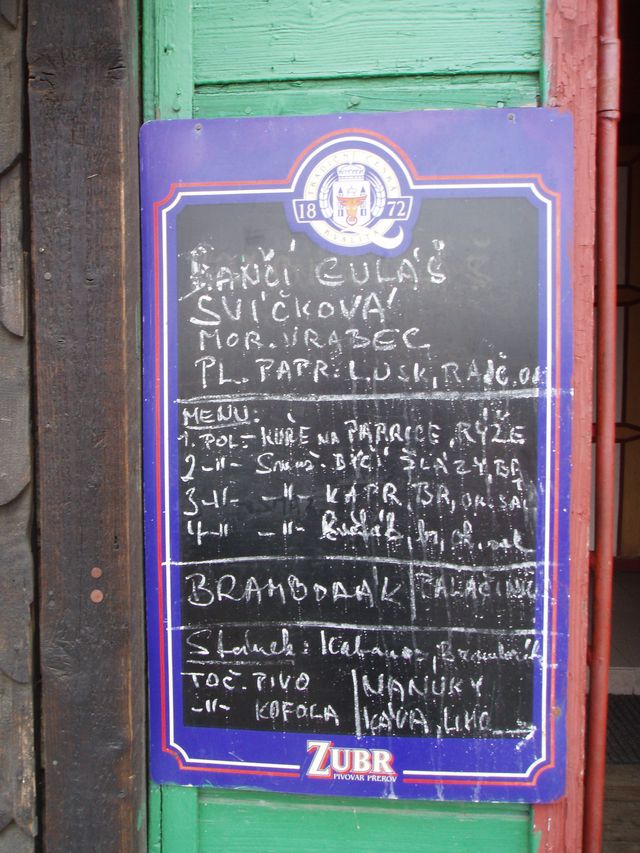 TRADIČNÍ ČESKÁ
18 72
KVALITA
KANČÍ GULÁŠ
SVÍČKOVÁ
MOR. VRABEC
PL. PAPR. LUSK, RAJČ. OM
MENU:
1. POL- KUŘE NA PAPRICE, RÝŽE
2 -"- Smaž. BÝČÍ ŽLÁZY, BR
3 -"- -"- KAPR, BR, OK. SAL
4 -"- -"- br, ok. sal
BRAMBORÁK | PALAČINKY
Stánek: Kabanos, Bramborák
TOČ. PIVO | NANUKY
-"- KOFOLA | KÁVA, LIMO →
ZUBR
PIVOVAR PŘEROV